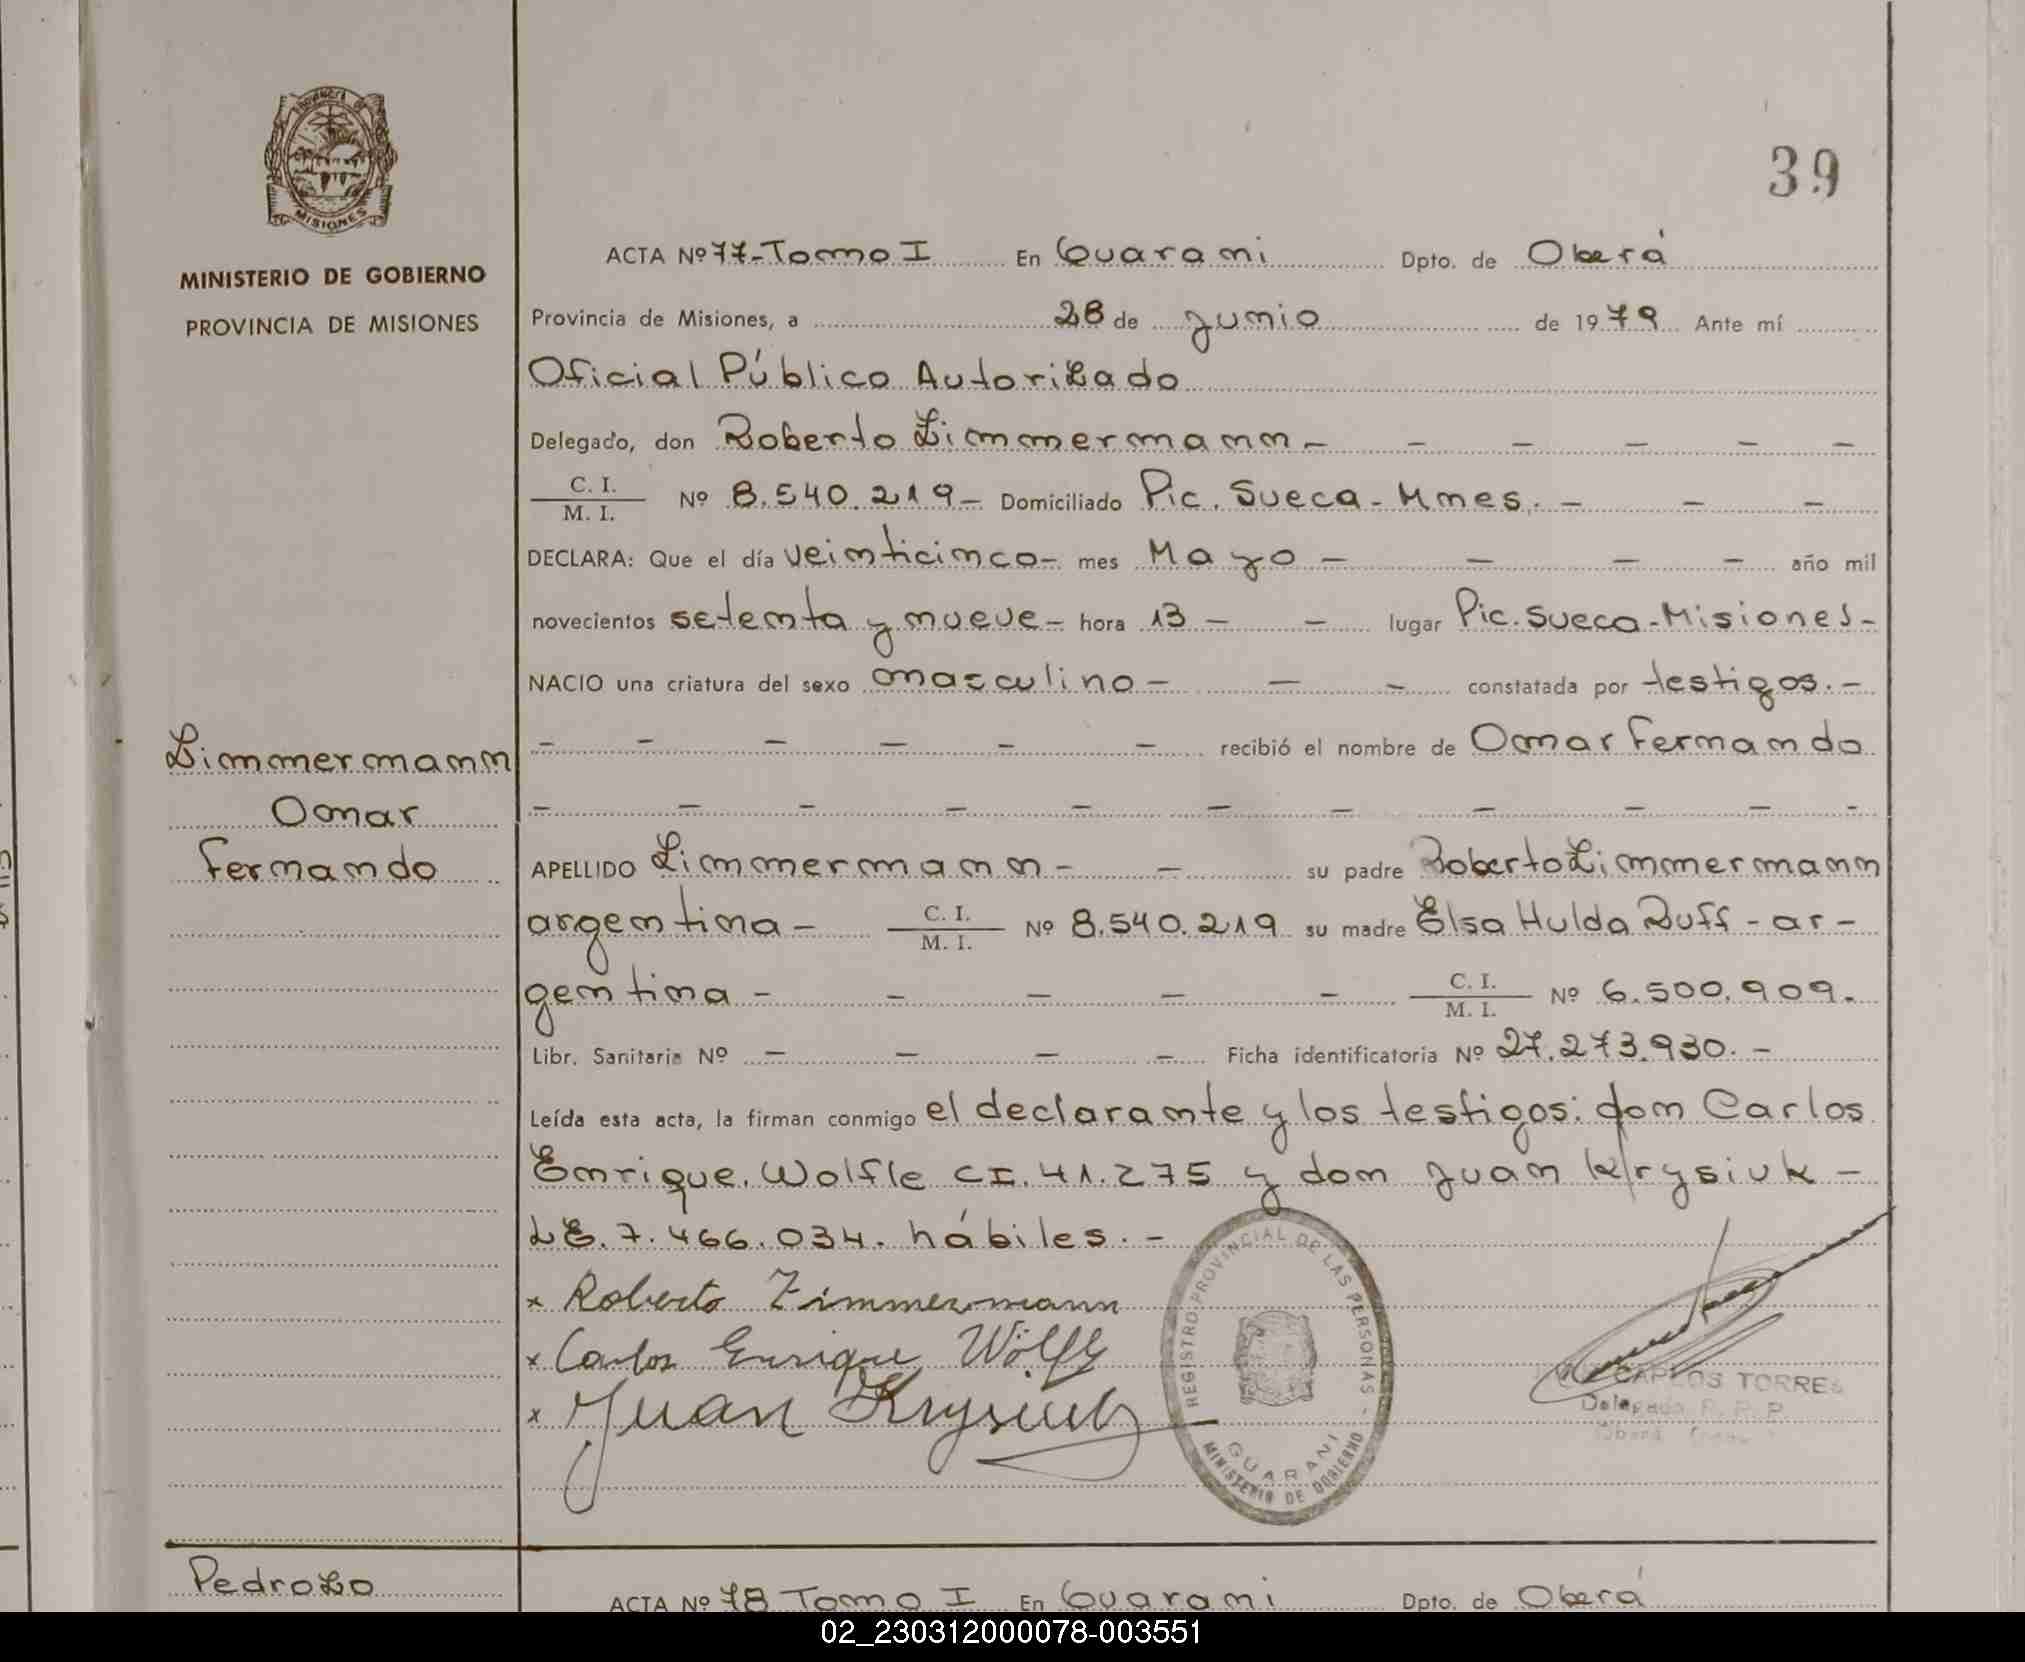 PROVINCIA DE
MISIONES
MINISTERIO DE GOBIERNO
PROVINCIA DE MISIONES
39
ACTA Nº 77-Tomo I En Guarani Dpto. de Oberá
Provincia de Misiones, a 28 de Junio de 1979 Ante mí
Oficial Público Autorizado
Delegado, don Roberto Zimmermann - - - - - -
C. I. / M. I. Nº 8.540.219- Domiciliado Pic. Sueca - Mnes. - - -
DECLARA: Que el día veinticinco- mes Mayo - - - - año mil
novecientos setenta y nueve- hora 13 - - lugar Pic. Sueca-Misiones-
NACIO una criatura del sexo masculino - - - constatada por testigos. -
- - - - - - recibió el nombre de Omar Fernando
- - - - - - - - - - -
Zimmermann
Omar
Fernando
APELLIDO Zimmermann - - su padre Roberto Zimmermann
argentina - C. I. / M. I. Nº 8.540.219 su madre Elsa Hulda Ruff - ar-
gentina - - - - - C. I. / M. I. Nº 6.500.909.
Libr. Sanitaria Nº - - - - Ficha identificatoria Nº 27.273.930. -
Leída esta acta, la firman conmigo el declarante y los testigos: don Carlos
Enrique. Wolfle CI. 41.275 y don Juan Krysiuk -
LE. 7.466.034. hábiles. -
x Roberto Zimmermann
x Carlos Enrique Wölfle
x Juan Krysiuk
REGISTRO PROVINCIAL DE LAS PERSONAS -
GUARANI
MINISTERIO DE GOBIERNO
CARLOS TORRES
Delegado R. P. P.
Oberá
Pedrozo
ACTA Nº 78 Tomo I En Guarani Dpto. de Oberá
02_230312000078-003551